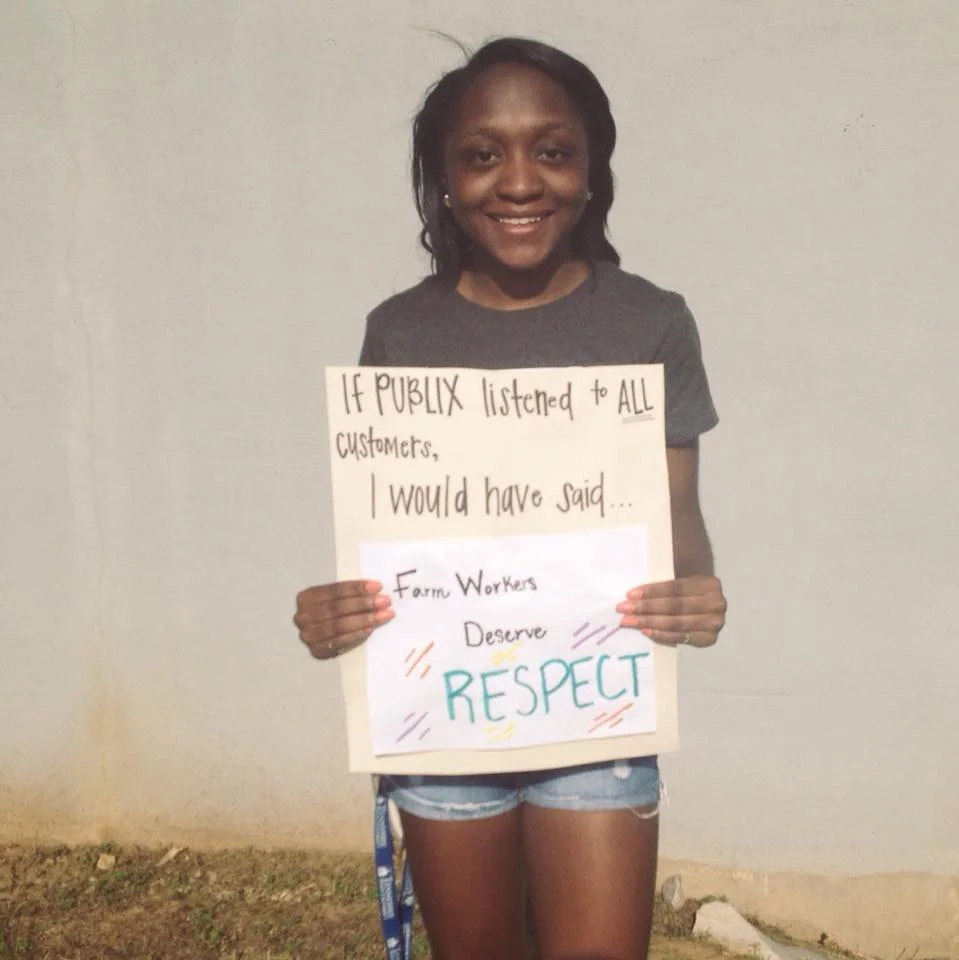 IF PUBLIX listened to ALL
customers,
I would have said...
Farm Workers
Deserve
RESPECT